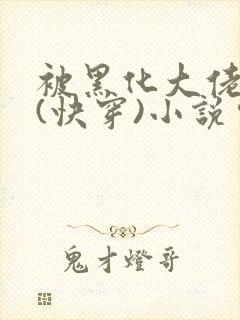 被黑化大佬
(快穿)小说
鬼才灯哥